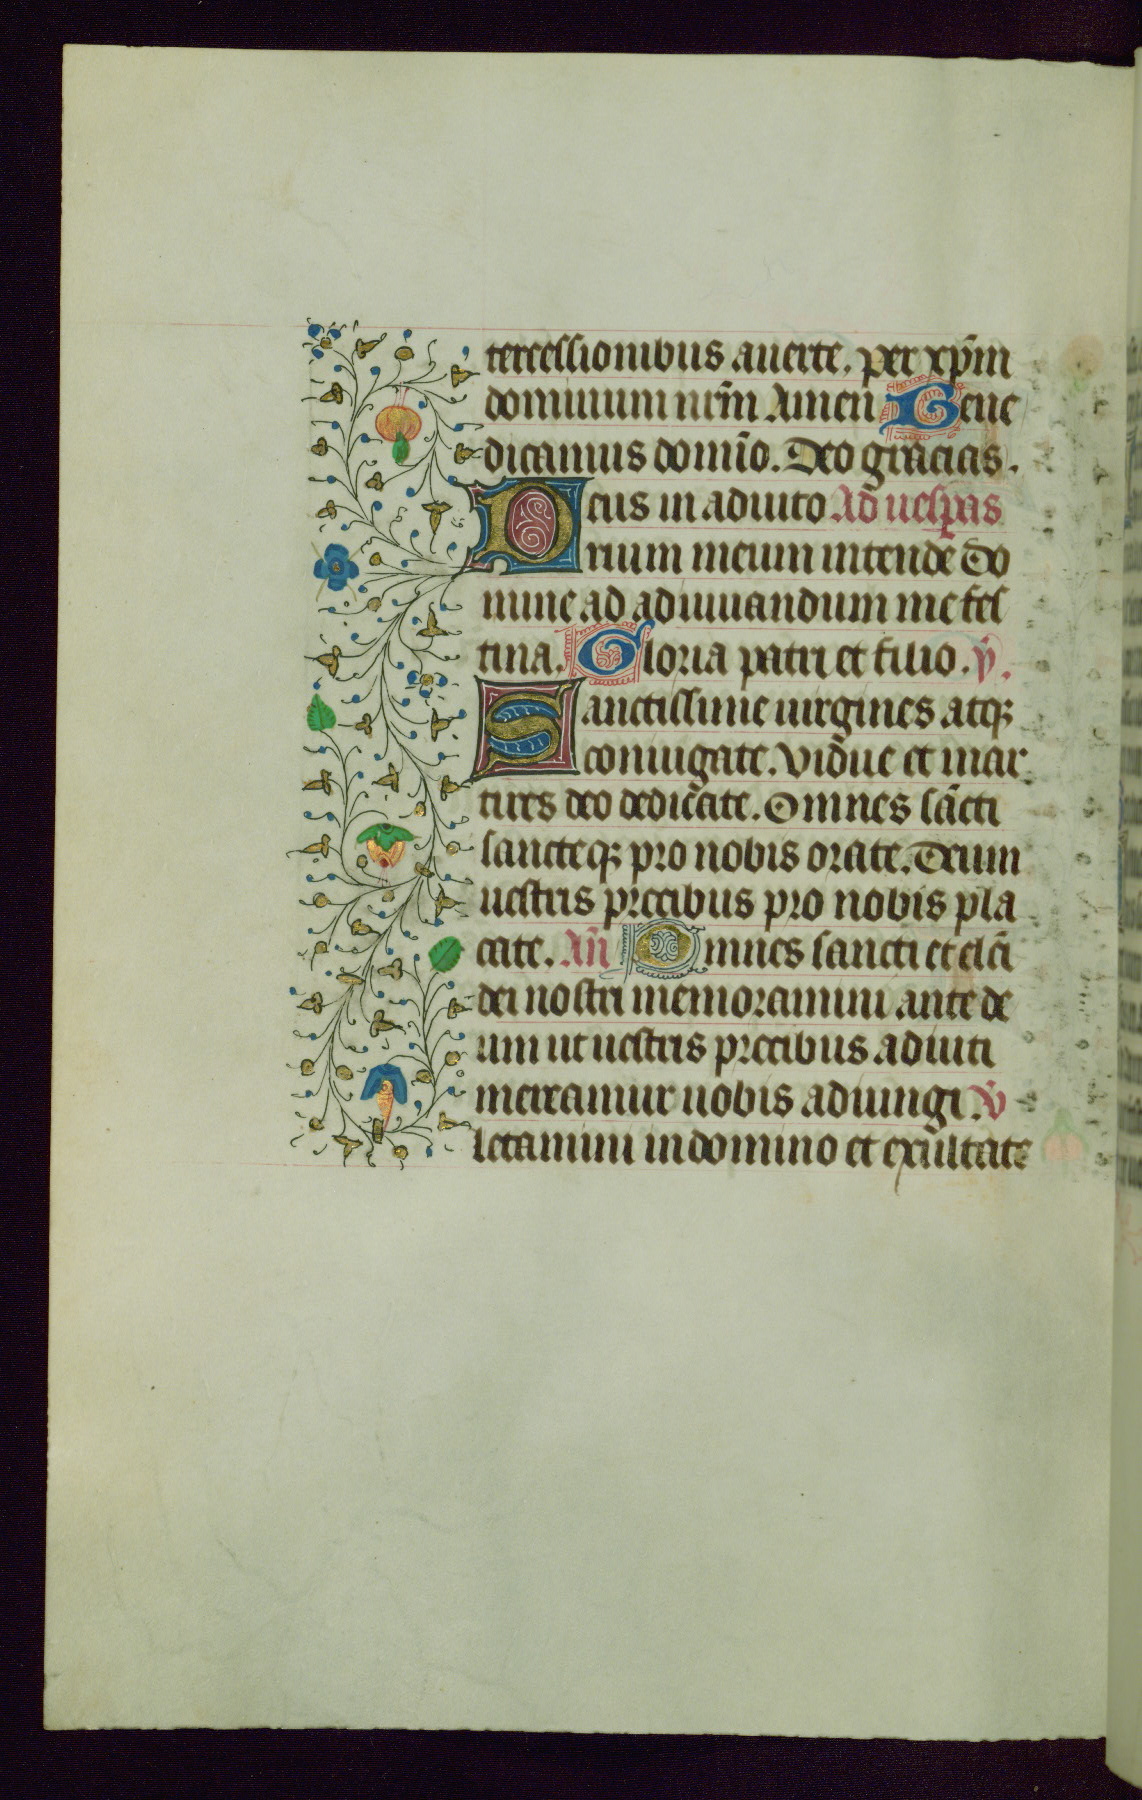 tercessionibus auerte. per xp̄m
dominum nr̄m Amen Bene
dicamus domīo. Deo gracias.
Deus in adiuto Ad uesꝑas
rium meum intende Do
mine ad adiuuandum me fes
tina. Gloria patri et filio. v̄.
Sanctissime uirgines atqꝫ
coniugate. vidue et mar
tires deo dedicate. Omnes sācti
sancteqꝫ pro nobis orate. Deum
uestris precibus pro nobis pla
cate. An̄ Omnes sancti et elc̄i
dei nostri memoramini ante de
um ut uestris precibus adiuti
mereamur uobis adiungi. v̄
letamini in domino et exultate